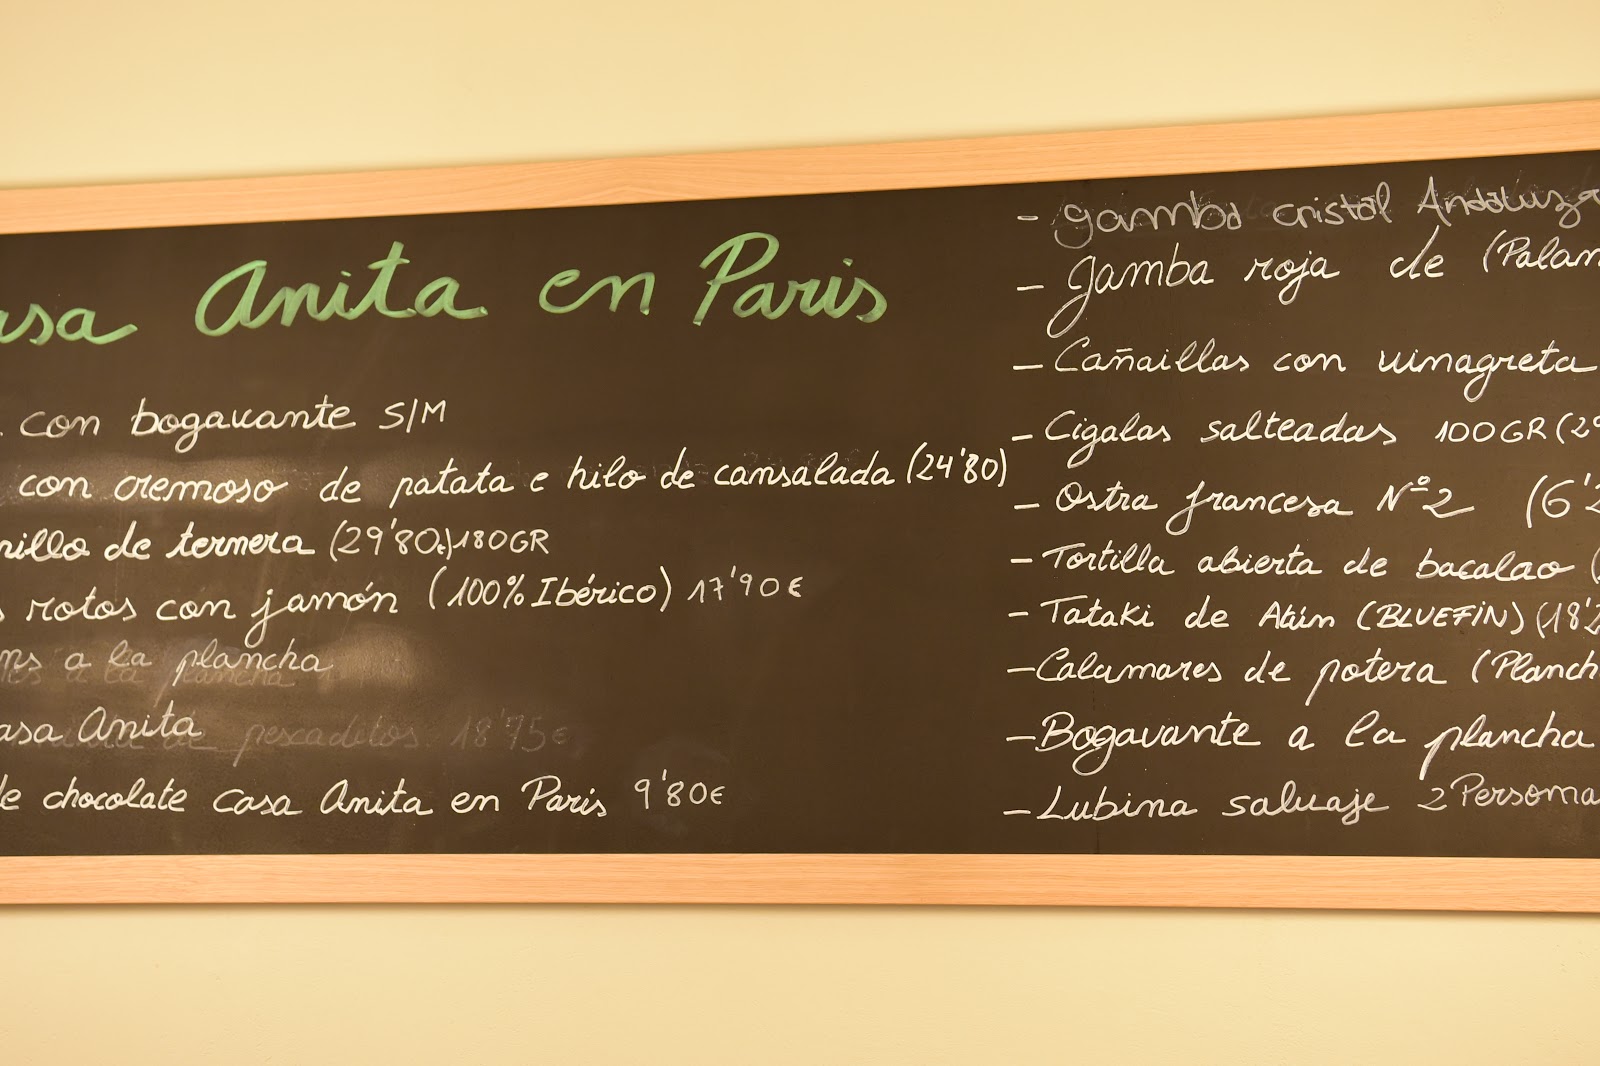 asa Anita en Paris
. con bogavante S/M
con cremoso de patata e hilo de cansalada (24'80)
nillo de ternera (29'80.)180GR
s rotos con jamón (100% Ibérico) 17'90€
ns a la plancha
asa Anita pescaditos 18'75€
de chocolate casa Anita en Paris 9'80€
- gamba cristal Andaluza
- gamba roja de (Palam
- Cañaillas con vinagreta
- Cigalas salteadas 100GR (29
- Ostra francesa Nº2 (6'2
- Tortilla abierta de bacalao (
- Tataki de Atún (BLUEFIN) (18'2
- Calamares de potera (Planch
- Bogavante a la plancha
- Lubina salvaje 2 Persona